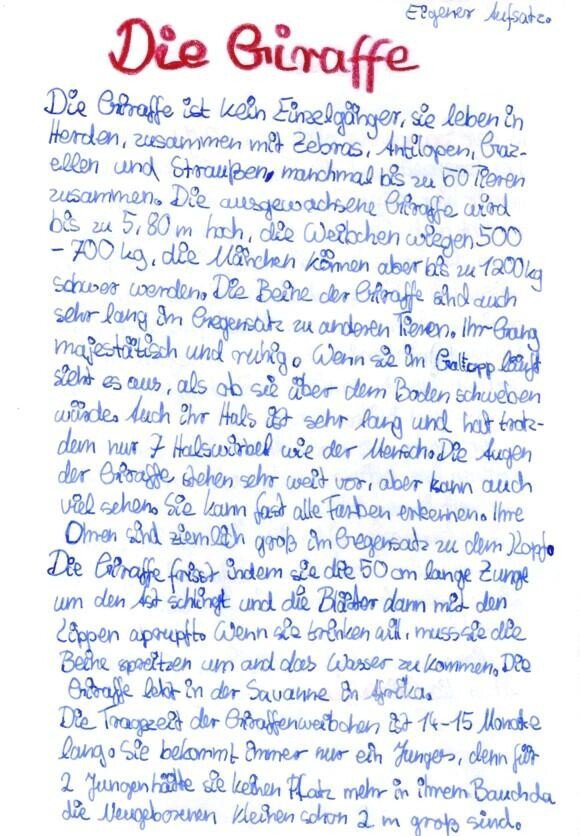 Eigener Aufsatz.
Die Giraffe
Die Giraffe ist kein Einzelgänger, sie leben in
Herden, zusammen mit Zebras, Antilopen, Graz-
ellen und Straußen, manchmal bis zu 50 Tieren
zusammen. Die ausgewachsene Giraffe wird
bis zu 5,80 m hoch, die Weibchen wiegen 500
- 700 kg, die Mänchen können aber bis zu 1200 kg
schwer werden. Die Beihe der Giraffe sind auch
sehr lang im Gegensatz zu anderen Tieren. Ihr Gang
majestätisch und ruhig. Wenn sie im Gallopp läuft
sieht es aus, als ob sie über dem Boden schweben
würde. Auch ihr Hals ist sehr lang und hat trotz-
dem nur 7 Halswirbel wie der Mensch. Die Augen
der Giraffe stehen sehr weit vor, aber kann auch
viel sehen. Sie kann fast alle Farben erkennen. Ihre
Ohren sind ziemlich groß im Gegensatz zu dem Kopf.
Die Giraffe frisst indem sie die 50 cm lange Zunge
um den Ast schlingt und die Blätter dann mit den
Lippen aprupft. Wenn sie trinken will, muss sie die
Beihe spreitzen um and das Wasser zu kommen. Die
Giraffe lebt in der Savanne in Afrika.
Die Tragzeit der Giraffenweibchen ist 14-15 Monate
lang. Sie bekommt immer nur ein Junges, denn für
2 Jungen hätte sie keinen Platz mehr in ihrem Bauch da
die Neugeborenen kleinen schon 2 m groß sind.